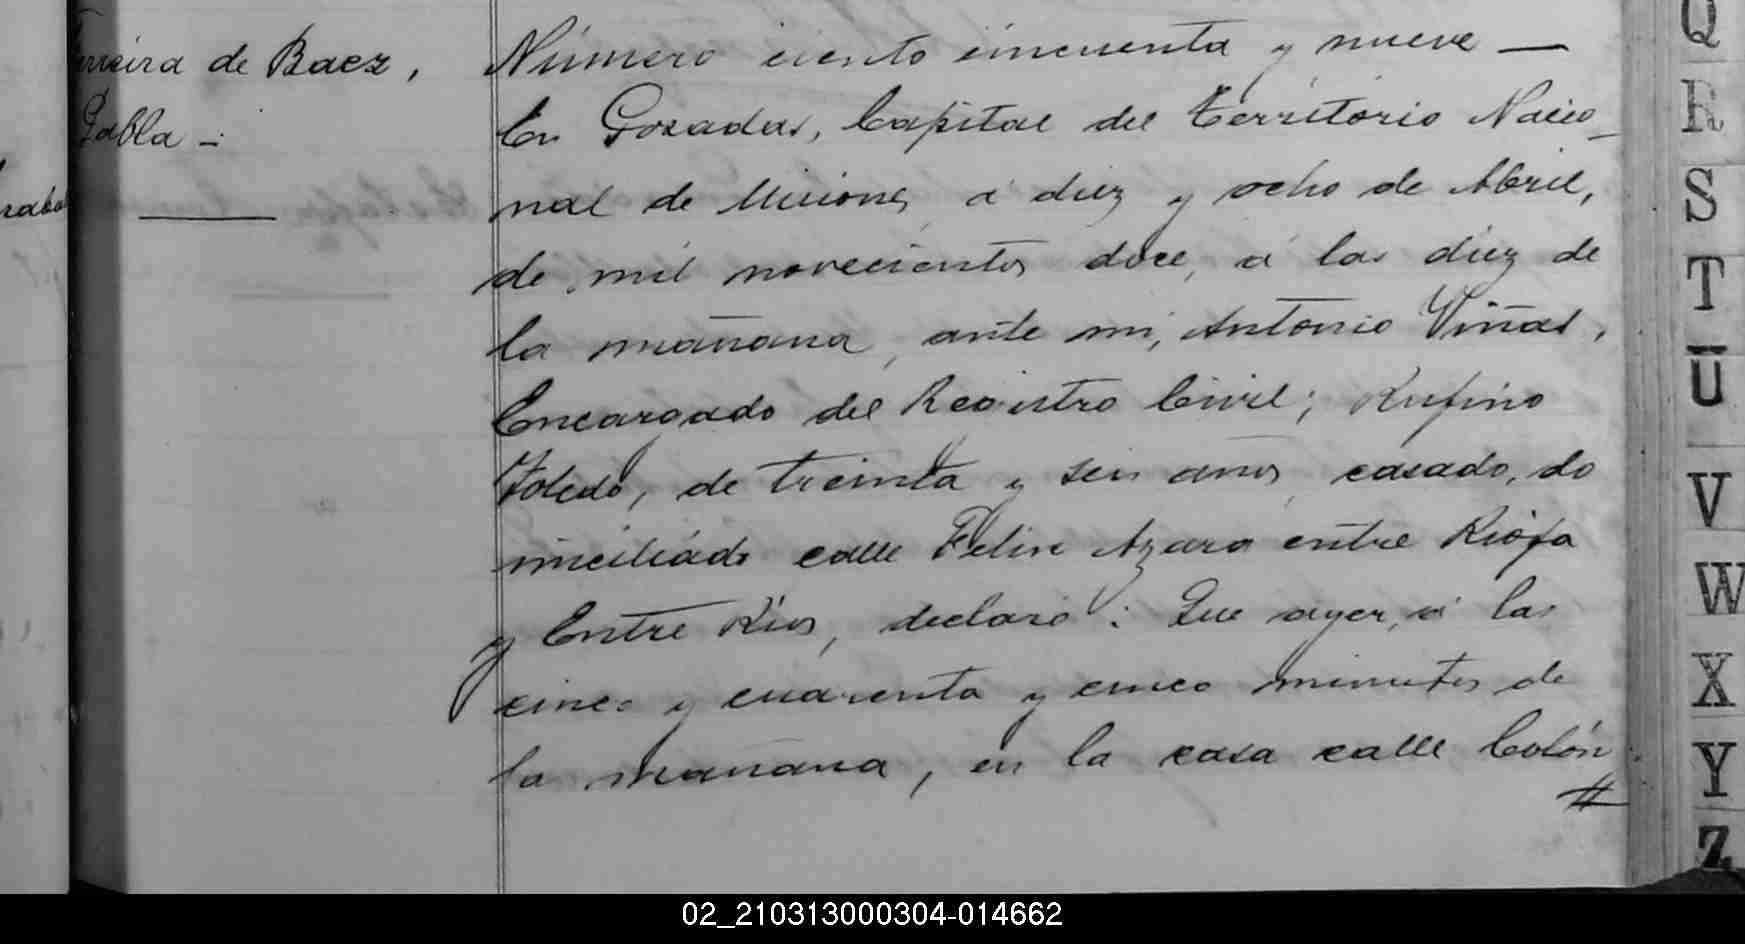 Ferreira de Baez,
Pabla -
Número ciento cincuenta y nueve —
En Posadas, Capital del Territorio Nacio-
nal de Misiones, á diez y ocho de Abril,
de mil novecientos doce, á las diez de
la mañana, ante mi, Antonio Viñas,
Encargado del Registro Civil; Rufino
Toledo, de treinta y seis años, casado, do
miciliado calle Felix Azara entre Rioja
y Entre Rios, declaró: Que ayer, á las
cinco y cuarenta y cinco minutos de
la mañana, en la casa calle Colón
//
Q
R
S
T
U
V
W
X
Y
Z
02_210313000304-014662